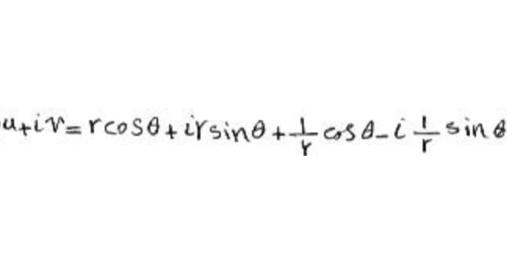 u+iv=rcosθ+irsinθ+\frac{1}{r}cosθ-i\frac{1}{r}sinθ